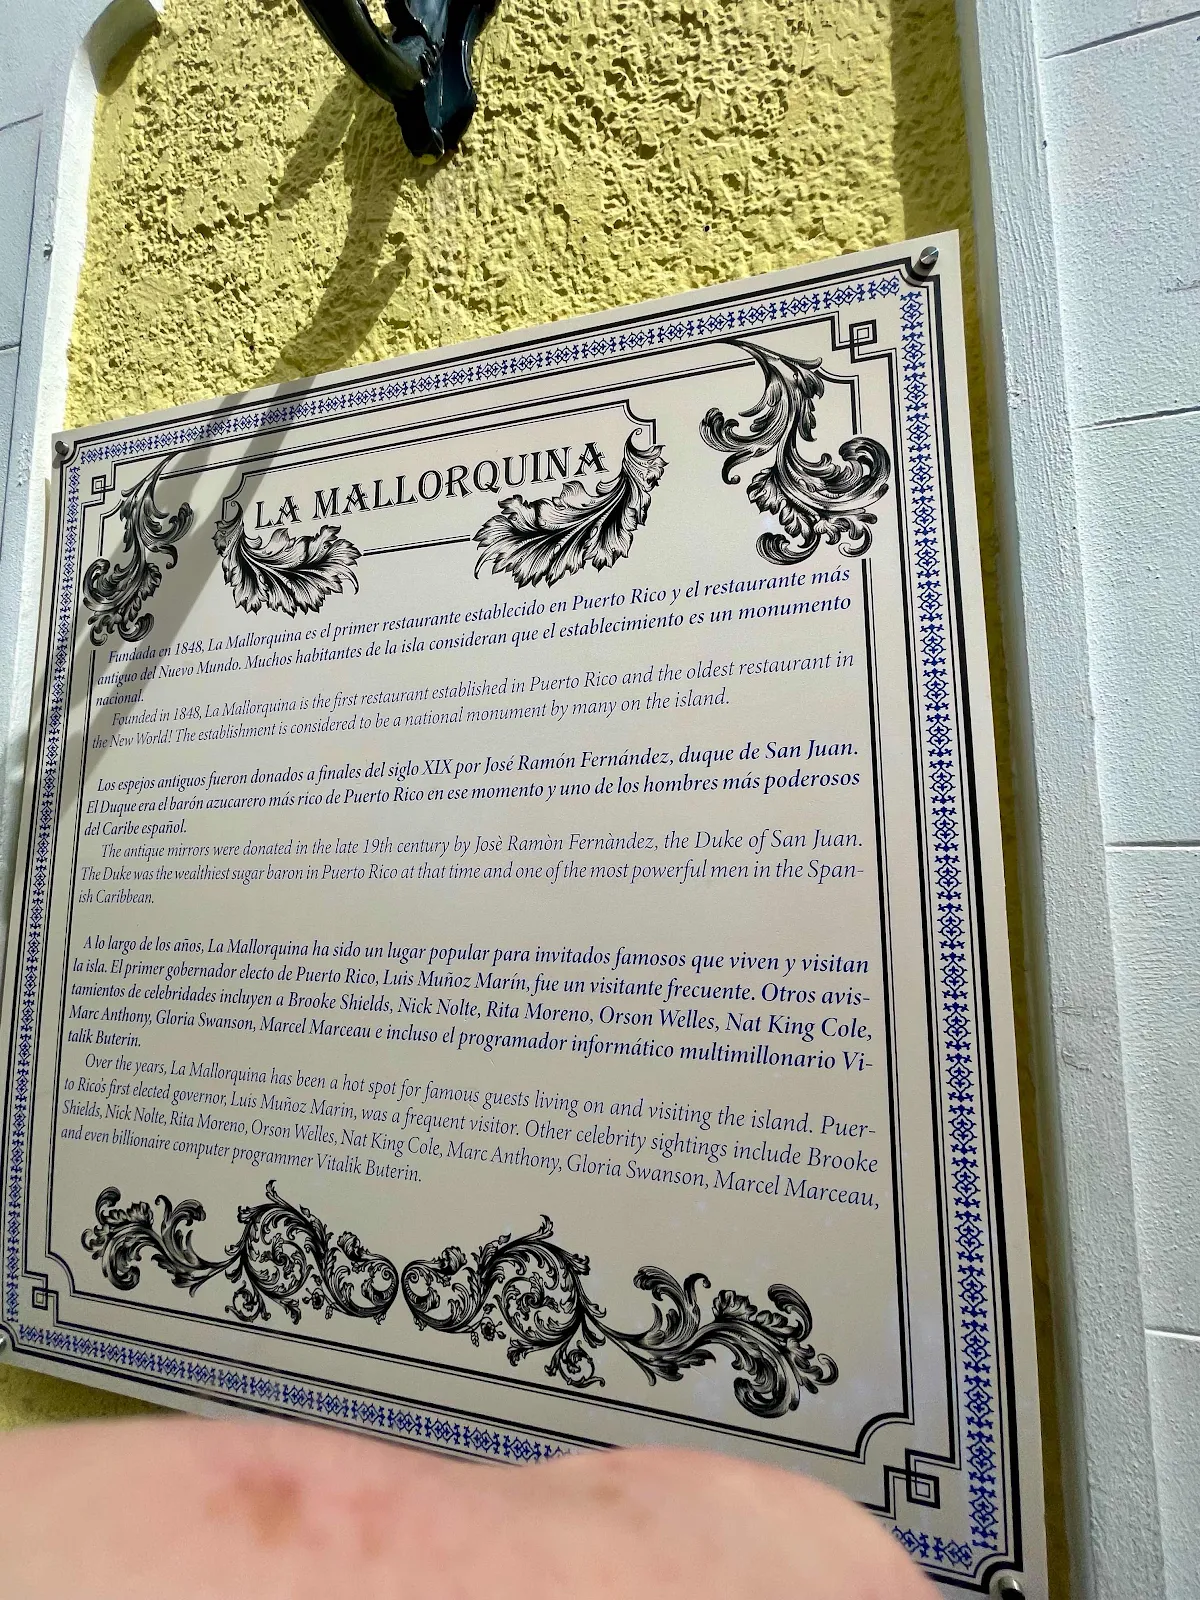 LA MALLORQUINA
Fundada en 1848, La Mallorquina es el primer restaurante establecido en Puerto Rico y el restaurante más
antiguo del Nuevo Mundo. Muchos habitantes de la isla consideran que el establecimiento es un monumento
nacional.
Founded in 1848, La Mallorquina is the first restaurant established in Puerto Rico and the oldest restaurant in
the New World! The establishment is considered to be a national monument by many on the island.
Los espejos antiguos fueron donados a finales del siglo XIX por José Ramón Fernández, duque de San Juan.
El Duque era el barón azucarero más rico de Puerto Rico en ese momento y uno de los hombres más poderosos
del Caribe español.
The antique mirrors were donated in the late 19th century by Josè Ramòn Fernàndez, the Duke of San Juan.
The Duke was the wealthiest sugar baron in Puerto Rico at that time and one of the most powerful men in the Span-
ish Caribbean.
A lo largo de los años, La Mallorquina ha sido un lugar popular para invitados famosos que viven y visitan
la isla. El primer gobernador electo de Puerto Rico, Luis Muñoz Marín, fue un visitante frecuente. Otros avis-
tamientos de celebridades incluyen a Brooke Shields, Nick Nolte, Rita Moreno, Orson Welles, Nat King Cole,
Marc Anthony, Gloria Swanson, Marcel Marceau e incluso el programador informático multimillonario Vi-
talik Buterin.
Over the years, La Mallorquina has been a hot spot for famous guests living on and visiting the island. Puer-
to Rico's first elected governor, Luis Muñoz Marin, was a frequent visitor. Other celebrity sightings include Brooke
Shields, Nick Nolte, Rita Moreno, Orson Welles, Nat King Cole, Marc Anthony, Gloria Swanson, Marcel Marceau,
and even billionaire computer programmer Vitalik Buterin.